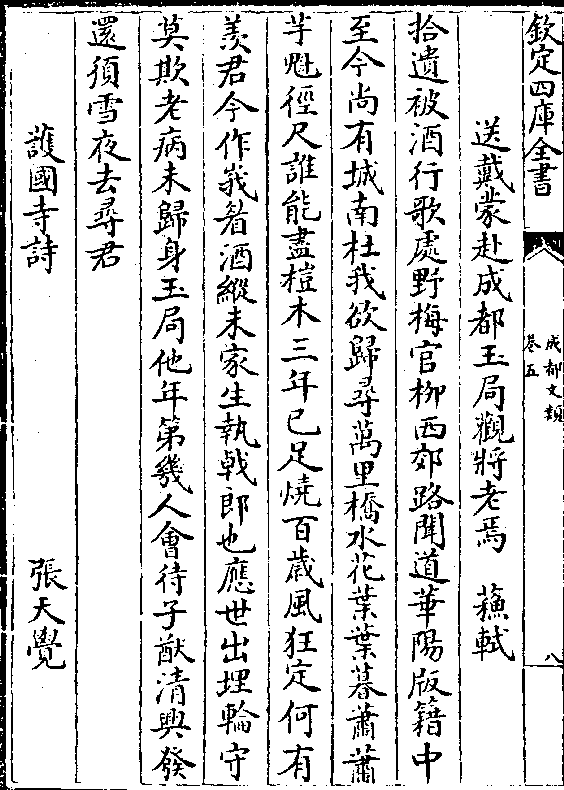 欽定四庫全書
成都文類
卷五
八
送戴蒙赴成都玉局觀將老焉 蘓軾
拾遺被酒行歌處野梅官柳西郊路聞道華陽版籍中
至今尚有城南杜我欲歸尋萬里橋水花葉葉暮蕭蕭
芋魁徑尺誰能盡榿木三年已足燒百歲風狂定何有
羨君今作峩縱未家生執戟郎也應世出埋輪守
莫欺老病未歸身玉局他年第幾人會待子猷清興發
還須雪夜去尋君
護國寺詩 張天覺